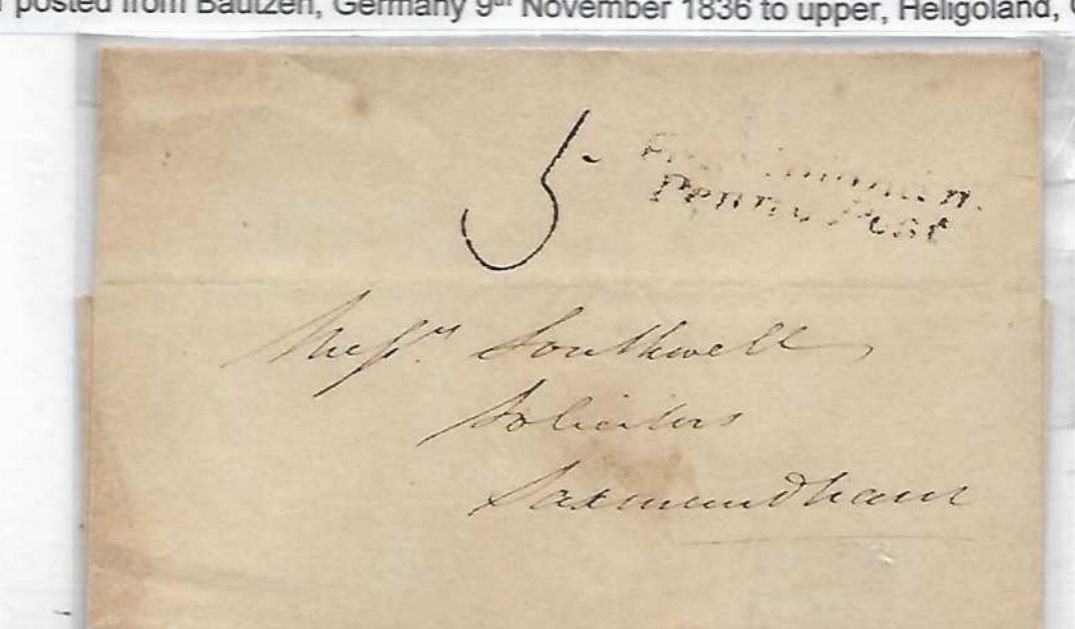 posted from Bautzen, Germany 9th November 1836 to upper, Heligoland,
5
Penny Post
Messrs Southwell
Solicitors
Saxmundham